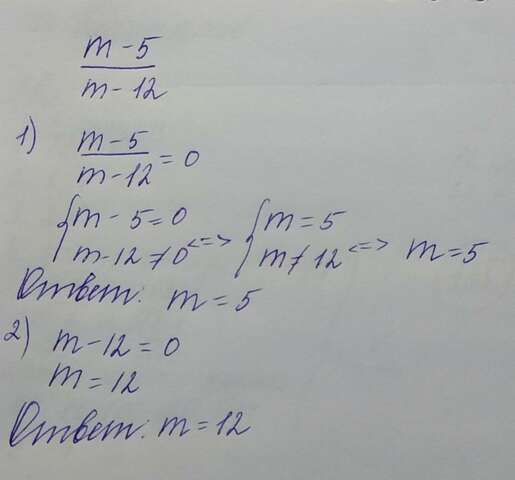 m - 5
m - 12
1) m - 5
m - 12 = 0
{ m - 5 = 0
m - 12 ≠ 0 <=> { m = 5
m ≠ 12 <=> m = 5
Ответ: m = 5
2) m - 12 = 0
m = 12
Ответ: m = 12